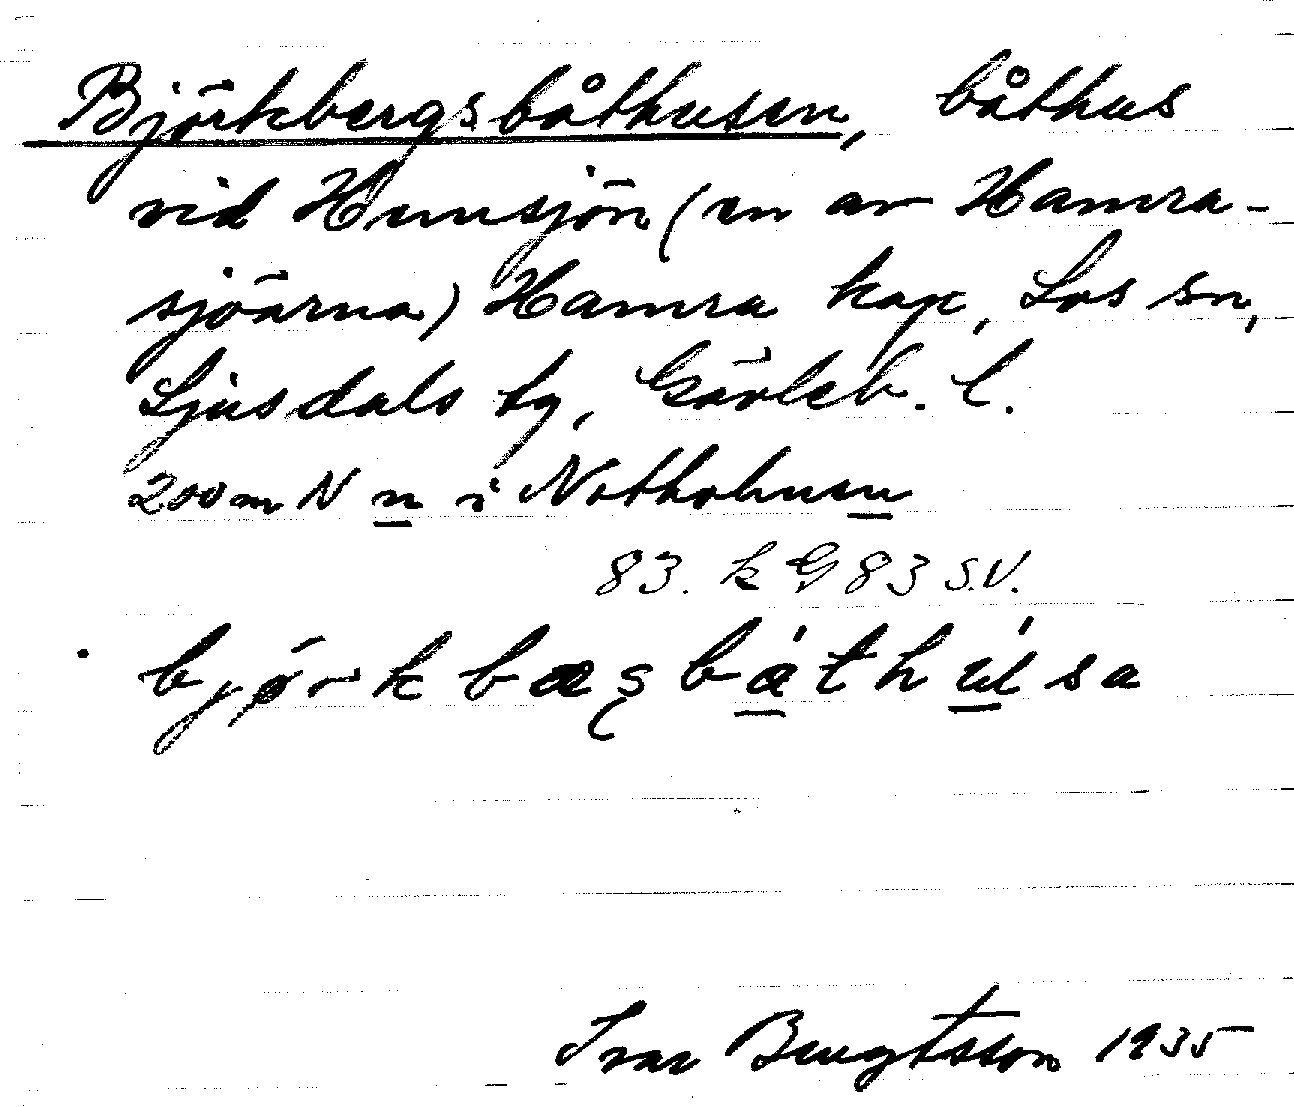 Björkbergsbåthusen, båthus
vid Hemsjön (en av Hamra-
sjöarna) Hamra kap, Los sn,
Ljusdals tg, Gävleb. l.
200 m N n i Notholmen
83. k G 83 S.V.
björkbæʂbåthúsa
Ivar Bengtsson 1935